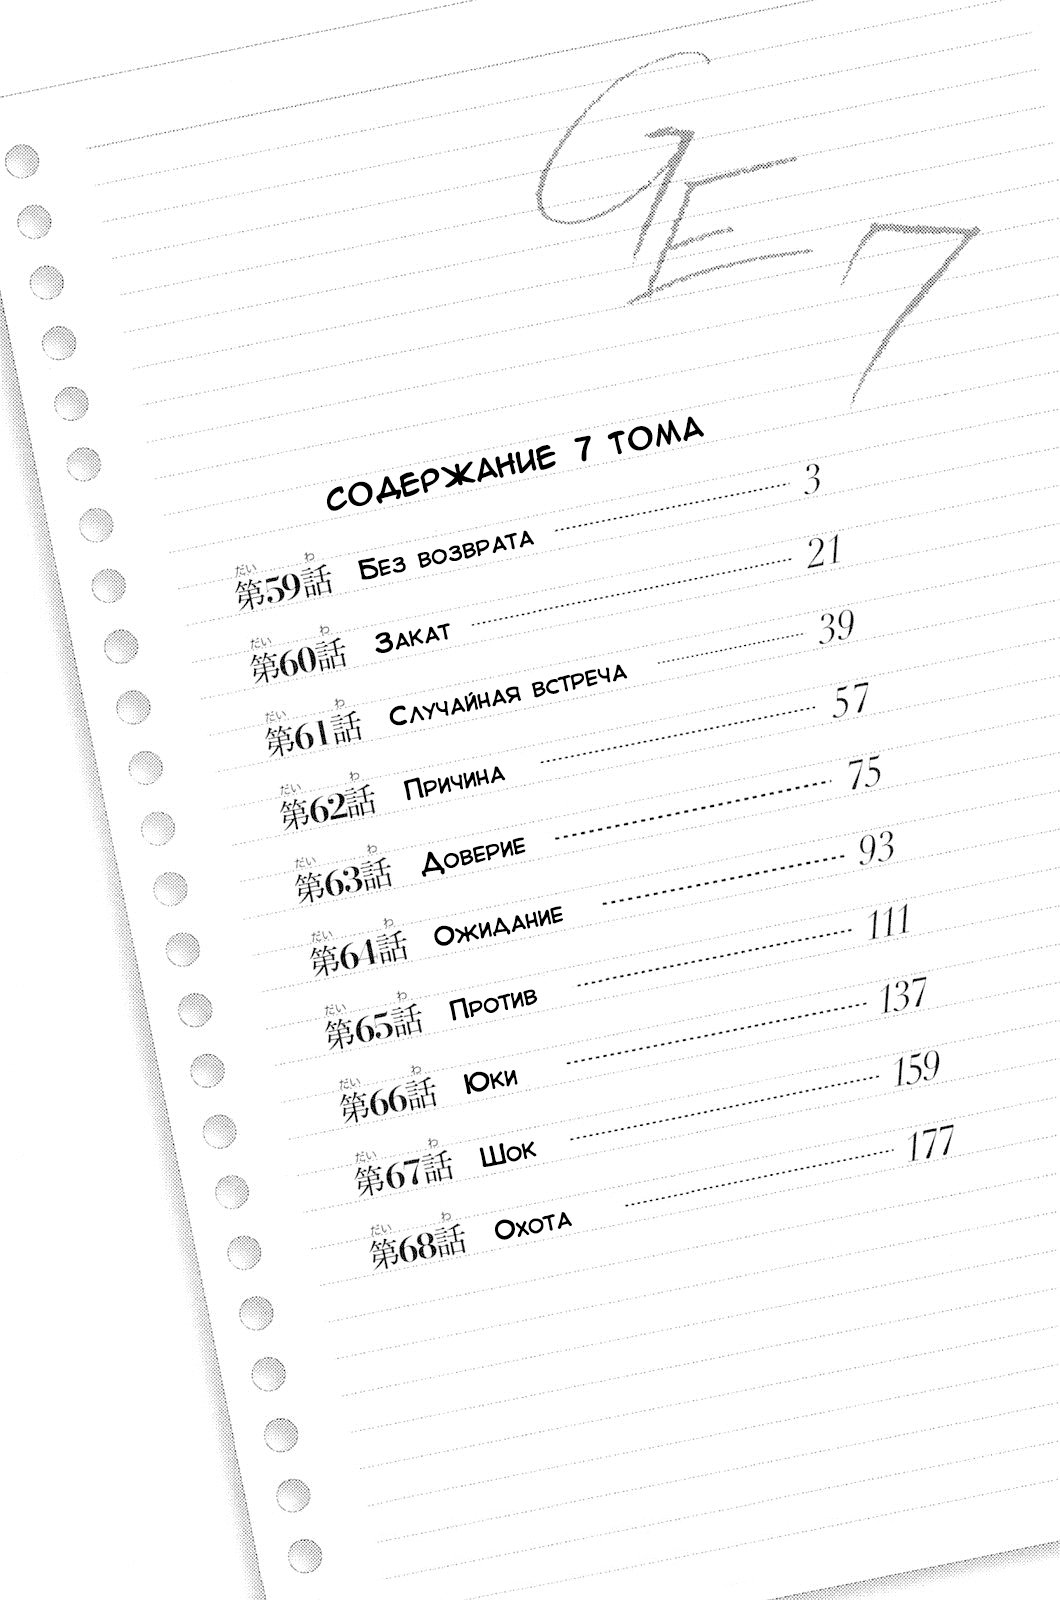 GE-7
СОДЕРЖАНИЕ 7 ТОМА
第59話 БЕЗ ВОЗВРАТА 3
第60話 ЗАКАТ 21
第61話 СЛУЧАЙНАЯ ВСТРЕЧА 39
第62話 ПРИЧИНА 57
第63話 ДОВЕРИЕ 75
第64話 ОЖИДАНИЕ 93
第65話 ПРОТИВ 111
第66話 ЮКИ 137
第67話 ШОК 159
第68話 ОХОТА 177